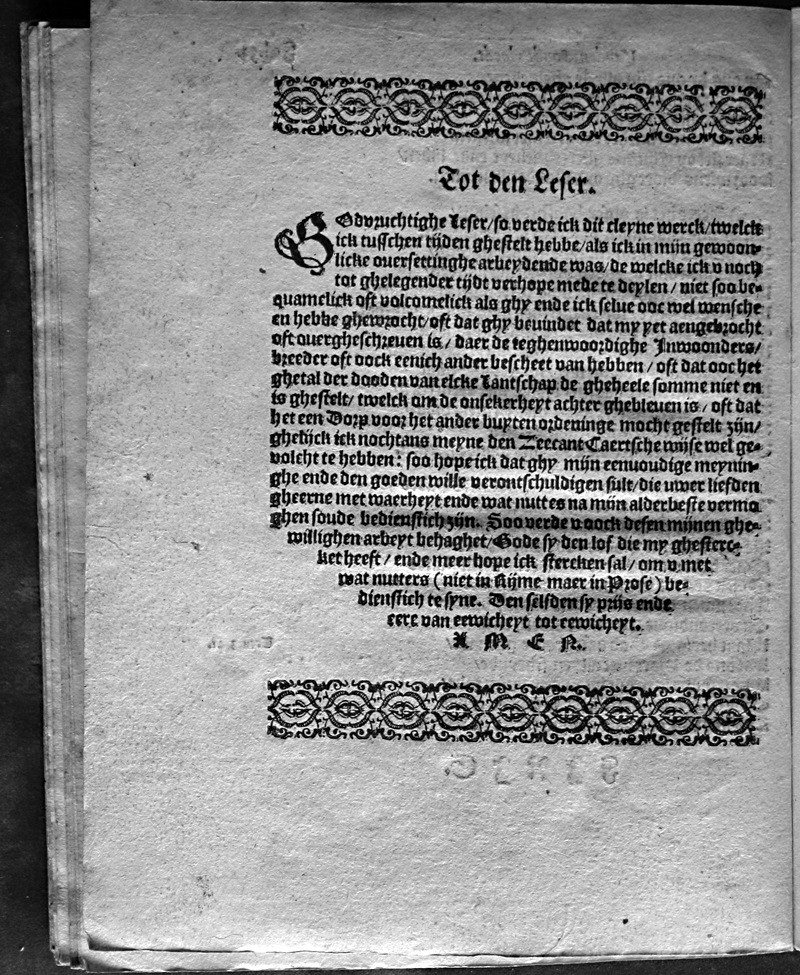 Tot den Leser.
GOdvruchtighe Leser/so verde ick dit cleyne werck/twelck
ick tusschen tijden ghestelt hebbe/als ick in mijn gewoon-
licke oversettinghe arbeydende was/de welcke ick v noch
tot ghelegender tijdt verhope mede te deylen/ niet soo be-
quamelick oft volcomelick als ghy ende ick selue ooc wel wensche
en hebbe ghewrocht/oft dat ghy beuindet dat my yet aengebrocht
oft ouergheschreuen is/ daer de teghenwoordighe Inwoonders/
breeder oft oock eenich ander bescheet van hebben/ oft dat ooc het
ghetal der dooden van elcke Lantschap de gheheele somme niet en
is ghestelt/ twelck om de onsekerheyt achter ghebleuen is/ oft dat
het een Dorp voor het ander buyten ordeninge mocht gestelt zijn/
ghelijck ick nochtans meyne den Zeecant Caertsche wijse wel ge-
volcht te hebben: soo hope ick dat ghy mijn eenuoudige meynin-
ghe ende den goeden wille verontschuldigen sult/die uwer liefden
gheerne met waerheyt ende wat nuttes na mijn alderbeste vermo
ghen soude bedienstich zijn. Soo verde v oock desen mijnen ghe-
willighen arbeyt behaghet/Gode sy den lof die my ghesterc-
ket heeft/ ende meer hope ick stercken sal/ om v met
wat nutters (niet in Rijme maer in Prose) be-
dienstich te syne. Den selfden sy prijs ende
eere van eewicheyt tot eewicheyt.
A M E N.